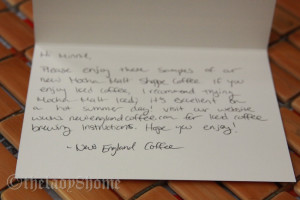 Please enjoy these samples of our
new Mocha Malt Shoppe Coffee. If you
enjoy Iced coffee, I recommend trying
Mocha Malt Iced; it's excellent on
a hot summer day! Visit our website
www.newenglandcoffee.com for Iced coffee
brewing instructions. Hope you enjoy!
- New England Coffee
©theladyShome